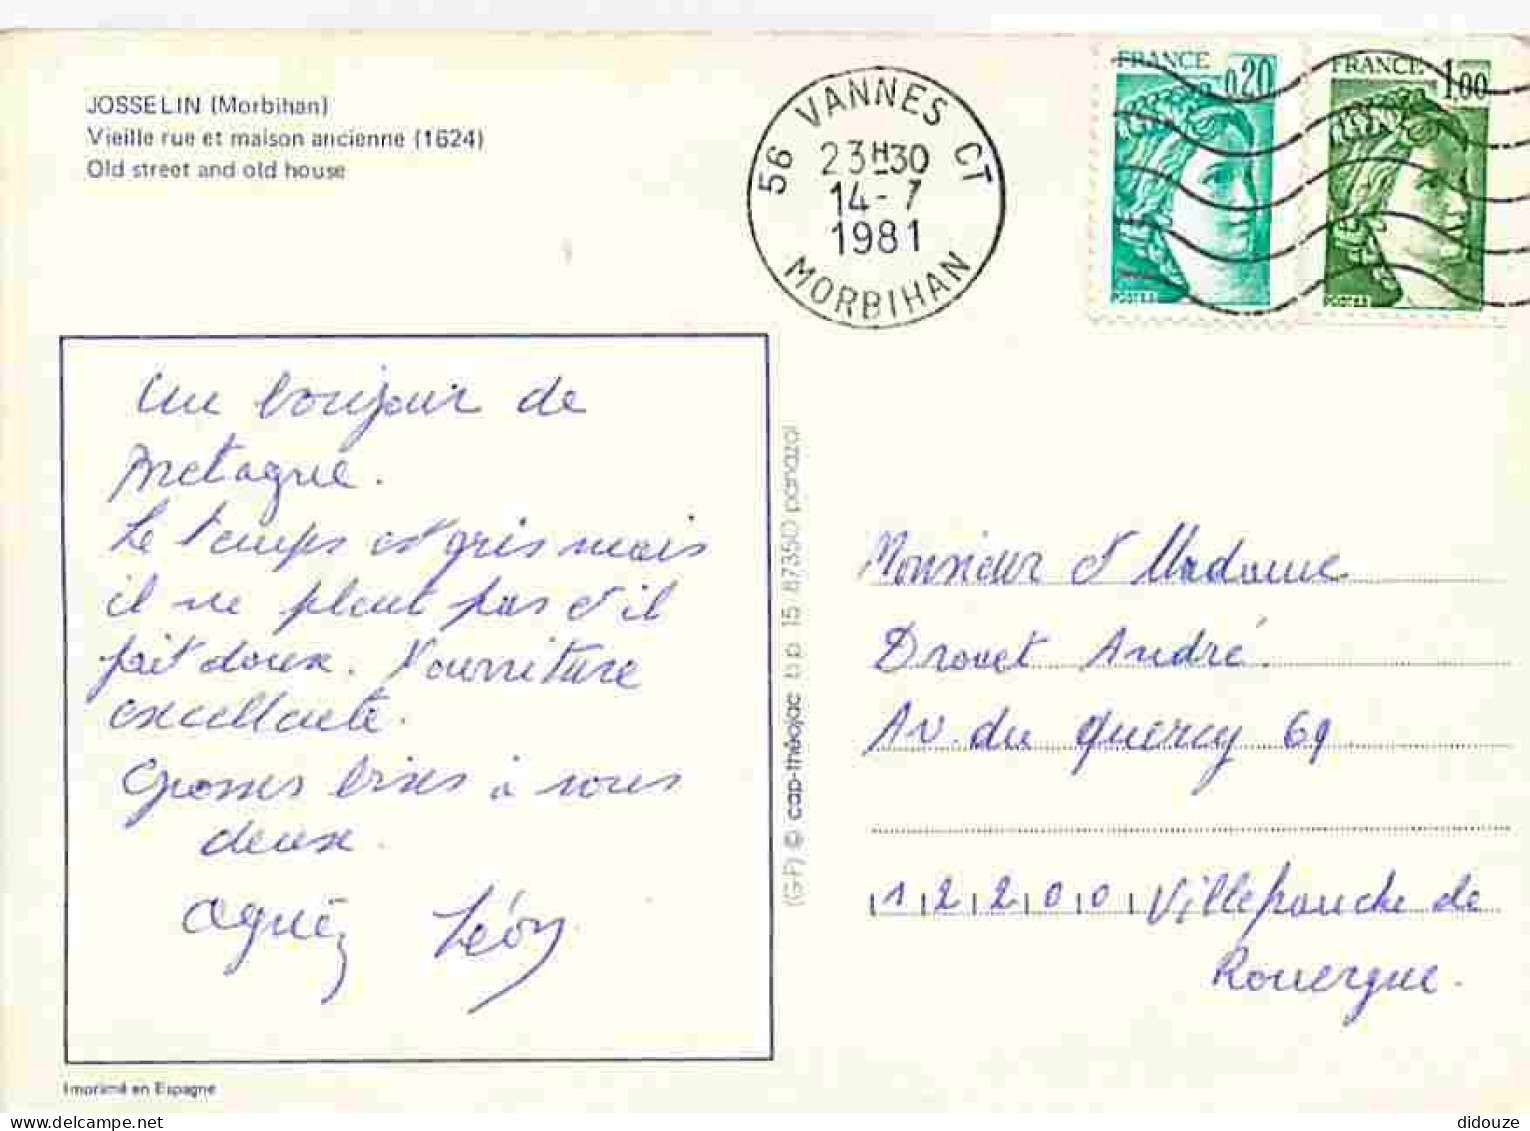 JOSSELIN (Morbihan)
Vieille rue et maison ancienne (1624)
Old street and old house
56 VANNES CT
23H30
14-7
1981
MORBIHAN
FRANCE 0,20
POSTES
FRANCE 1,00
POSTES
Un bonjour de
Bretagne.
Le temps est gris mais
il ne pleut pas et il
fait doux. Nourriture
excellente.
Grosses bises à vous
deux.
Agnès Léon
(GF) © cap-théojac b p 15 87350 panazol
Monsieur et Madame
Drouet André.
Av. du Quercy 69
12200 Villefranche de
Rouergue.
Imprimé en Espagne
didouze